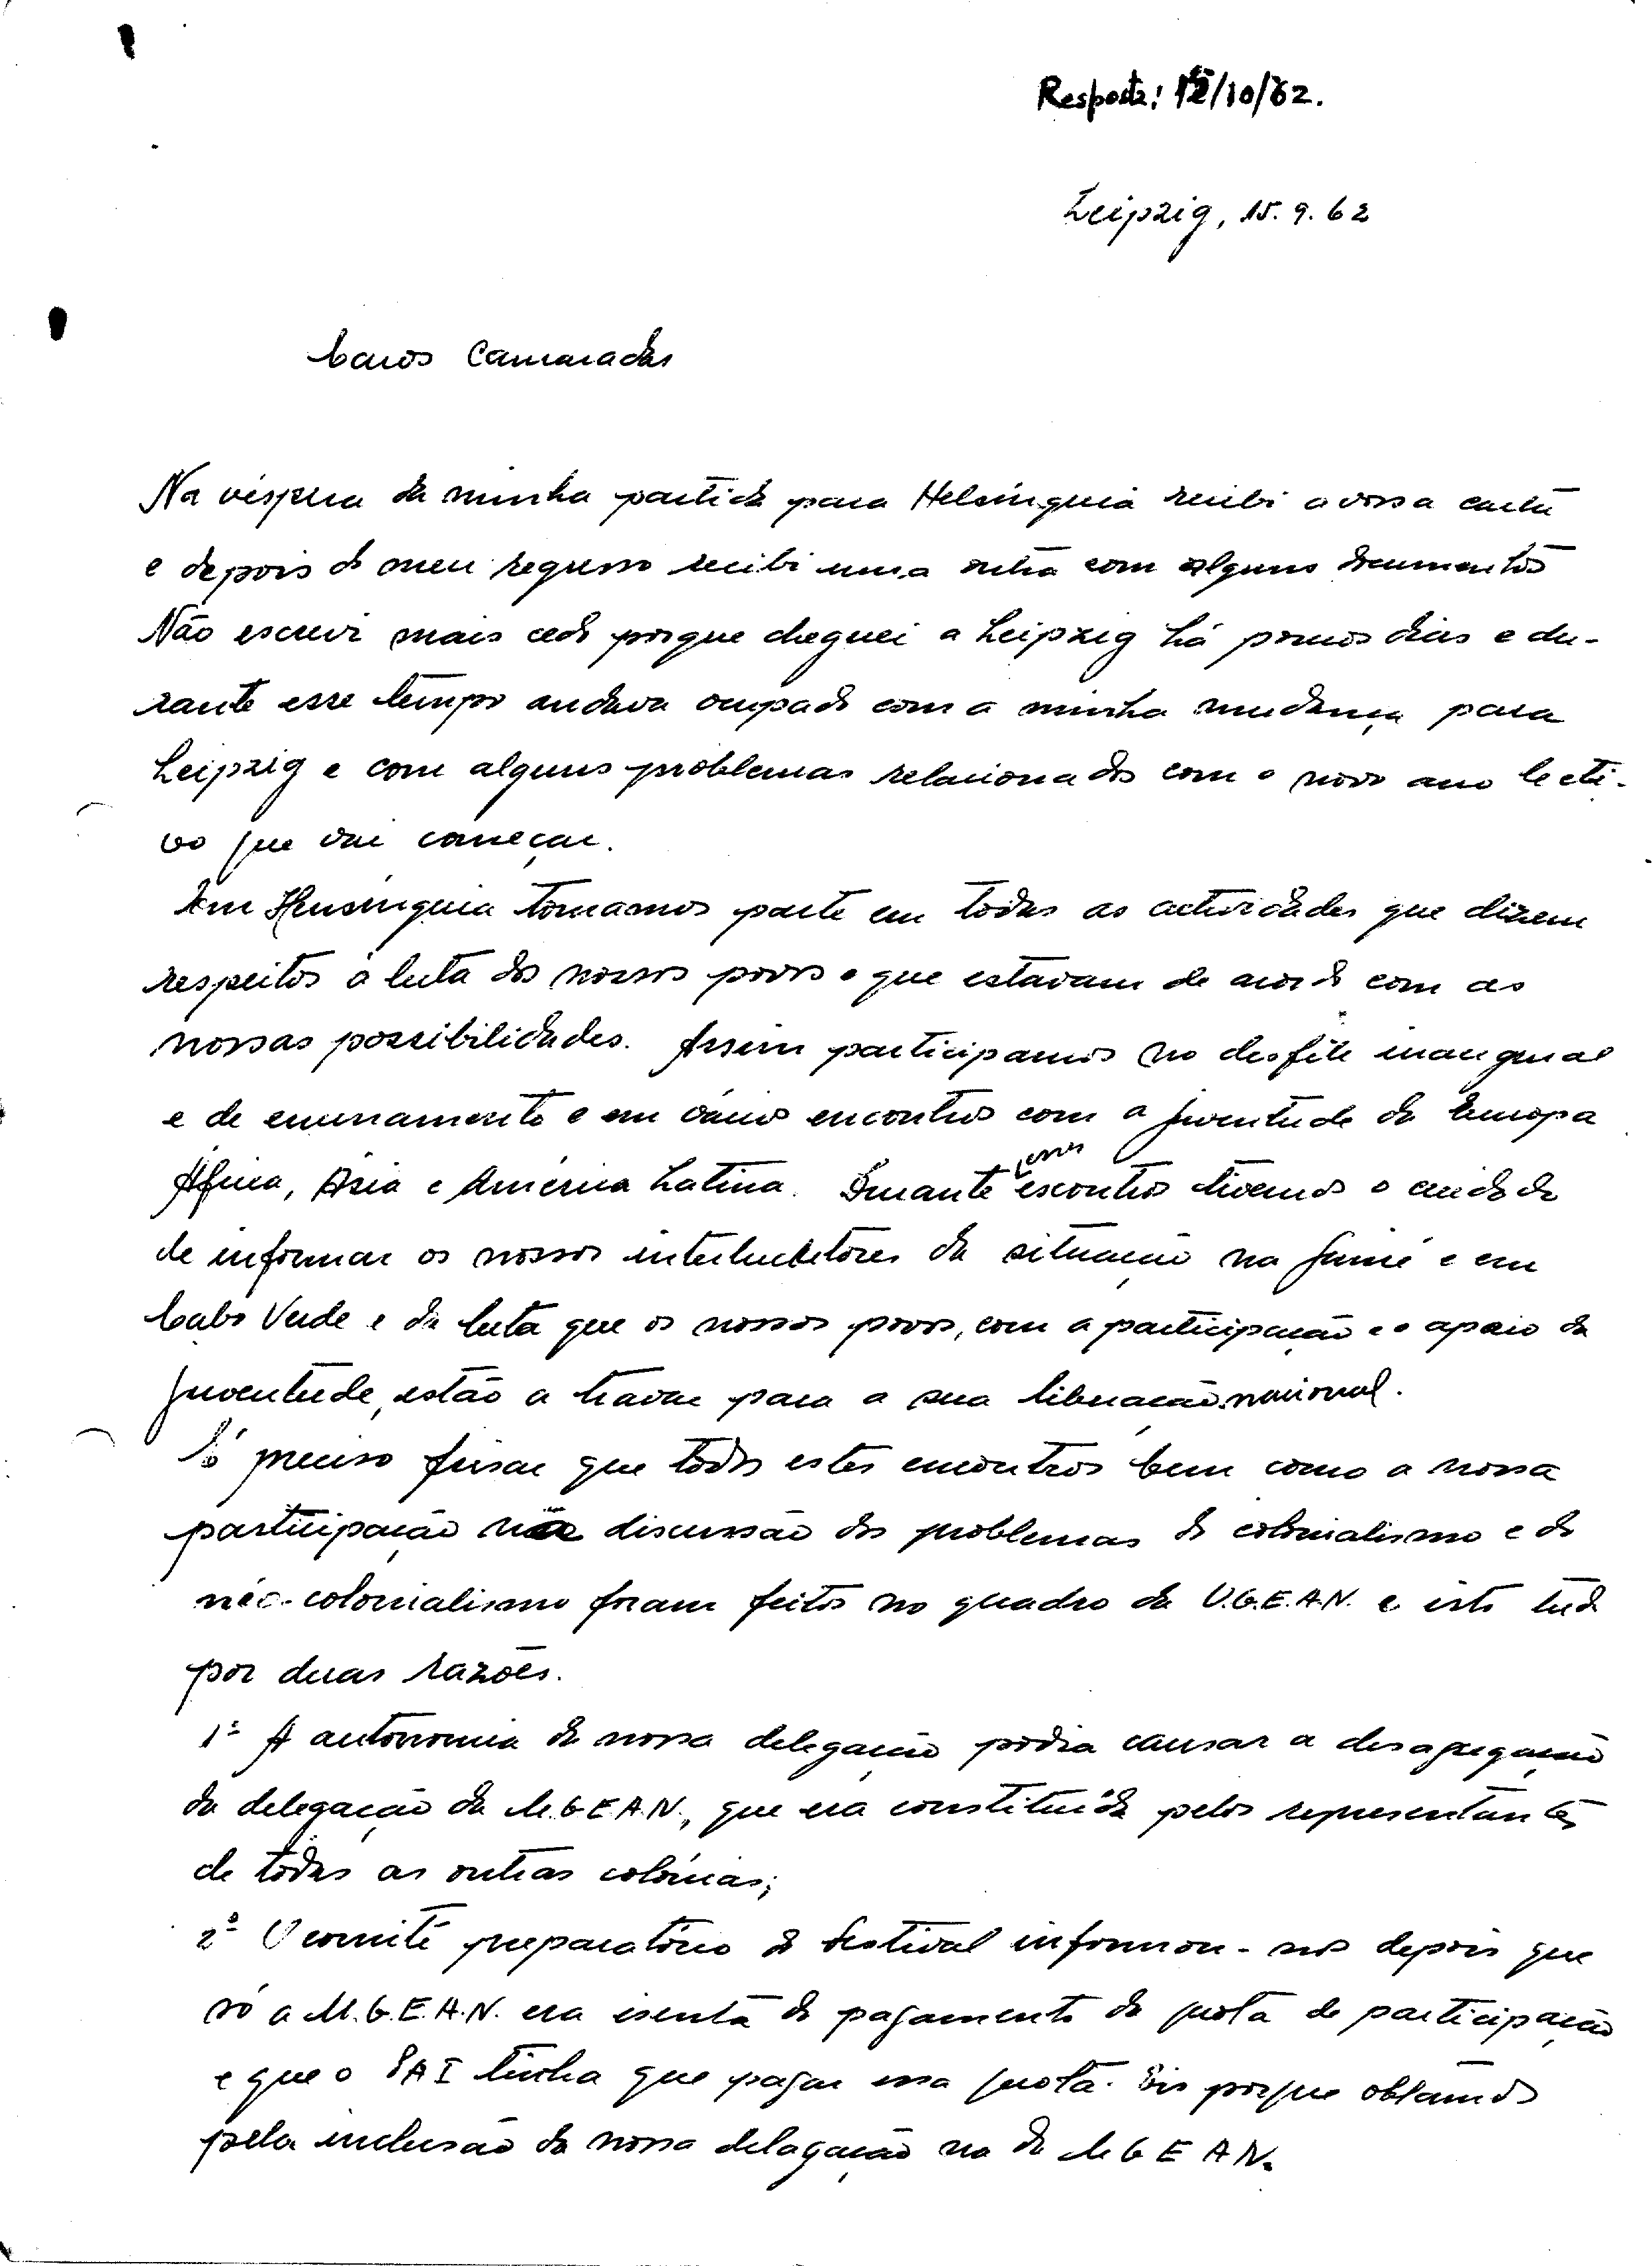 Resposta: 12/10/62.
Leipzig, 15.9.62
Caros Camaradas
Na véspera da minha partida para Helsínquia recibi a vossa carta
e depois do meu regresso recibi uma outra com alguns documentos
Não escrevi mais cedo porque cheguei a Leipzig há poucos dias e du-
rante esse tempo andava ocupado com a minha mudança para
Leipzig e com alguns problemas relacionados com o novo ano lecti-
vo que vai começar.
Em Hensínquia tomamos parte em todas as actividades que dizem
respeitos à luta dos nossos povos e que estavam de acordo com as
nossas possibilidades. Assim participamos no desfile inaugural
e de encerramento e em vários encontros com a juventude da Europa
África, Ásia e América Latina. Durante esses escontros tivemos o cuidado
de informar os nossos interlucutores da situação na Guiné e em
Cabo Verde e da luta que os nossos povos, com a participação e o apoio da
juventude, estão a travar para a sua liberação nacional.
É preciso frisar que todos estes encontros bem como a nossa
participação na discussão dos problemas do colonialismo e do
néo-colonialismo foram feitos no quadro da U.G.E.A.N. e isto tudo
por duas razões.
1º A autonomia da nossa delegação podia causar a desagregação
da delegação da U.G.E.A.N., que era constituída pelos representantes
de todas as outras colónias;
2º O comité preparatório do Festival informou-nos depois que
só a U.G.E.A.N. era isenta do pagamento da quota de participação
e que o PAI tinha que pagar essa quota. Eis porque obtamos
pela inclusão da nossa delagação na da U G E A N.